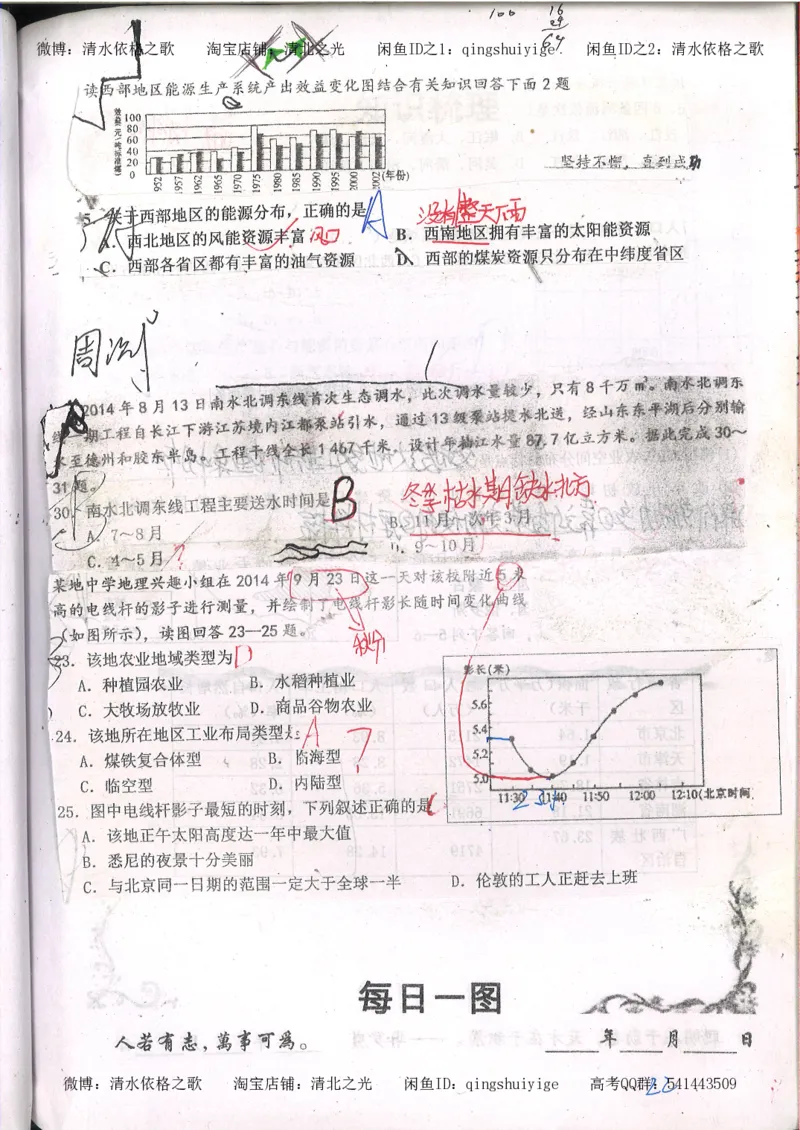 100
16
24
64
微博：清水依格之歌 淘宝店铺：清北之光 闲鱼ID之1：qingshuiyige 闲鱼ID之2：清水依格之歌
读西部地区能源生产系统产出效益变化图结合有关知识回答下面2题
效益(元/吨标准煤)
100
80
60
40
20
0
1952 1957 1962 1965 1970 1975 1980 1985 1990 1995 2000 2002 (年份)
坚持不懈，直到成功
5．关于西部地区的能源分布，正确的是 A
没有整天下雨
A．西北地区的风能资源丰富 风口 B．西南地区拥有丰富的太阳能资源
C．西部各省区都有丰富的油气资源 D．西部的煤炭资源只分布在中纬度省区
周测
2014年8月13日南水北调东线首次生态调水，此次调水量较少，只有8千万m³。南水北调东
线一期工程自长江下游江苏境内江都泵站引水，通过13级泵站提水北送，经山东东平湖后分别输
水至德州和胶东半岛。工程干线全长1 467千米，设计年抽江水量87.7亿立方米。据此完成30～
31题。
30．南水北调东线工程主要送水时间是 B 冬季枯水期缺水北方
A．7～8月 B．11月～次年3月
C．4～5月 D．9～10月
某地中学地理兴趣小组在2014年9月23日这一天对该校附近5米
高的电线杆的影子进行测量，并绘制了电线杆影长随时间变化曲线
（如图所示），读图回答23—25题。
秋分
23．该地农业地域类型为 D
A．种植园农业 B．水稻种植业
C．大牧场放牧业 D．商品谷物农业
24．该地所在地区工业布局类型是 A
A．煤铁复合体型 B．临海型
C．临空型 D．内陆型
影长(米)
5.6
5.4
5.2
5.0
11:30 11:40 11:50 12:00 12:10(北京时间)
25．图中电线杆影子最短的时刻，下列叙述正确的是 C
A．该地正午太阳高度达一年中最大值
B．悉尼的夜景十分美丽
C．与北京同一日期的范围一定大于全球一半 D．伦敦的工人正赶去上班
每日一图
人若有志，萬事可爲。 年 月 日
微博：清水依格之歌 淘宝店铺：清北之光 闲鱼ID：qingshuiyige 高考QQ群：541443509